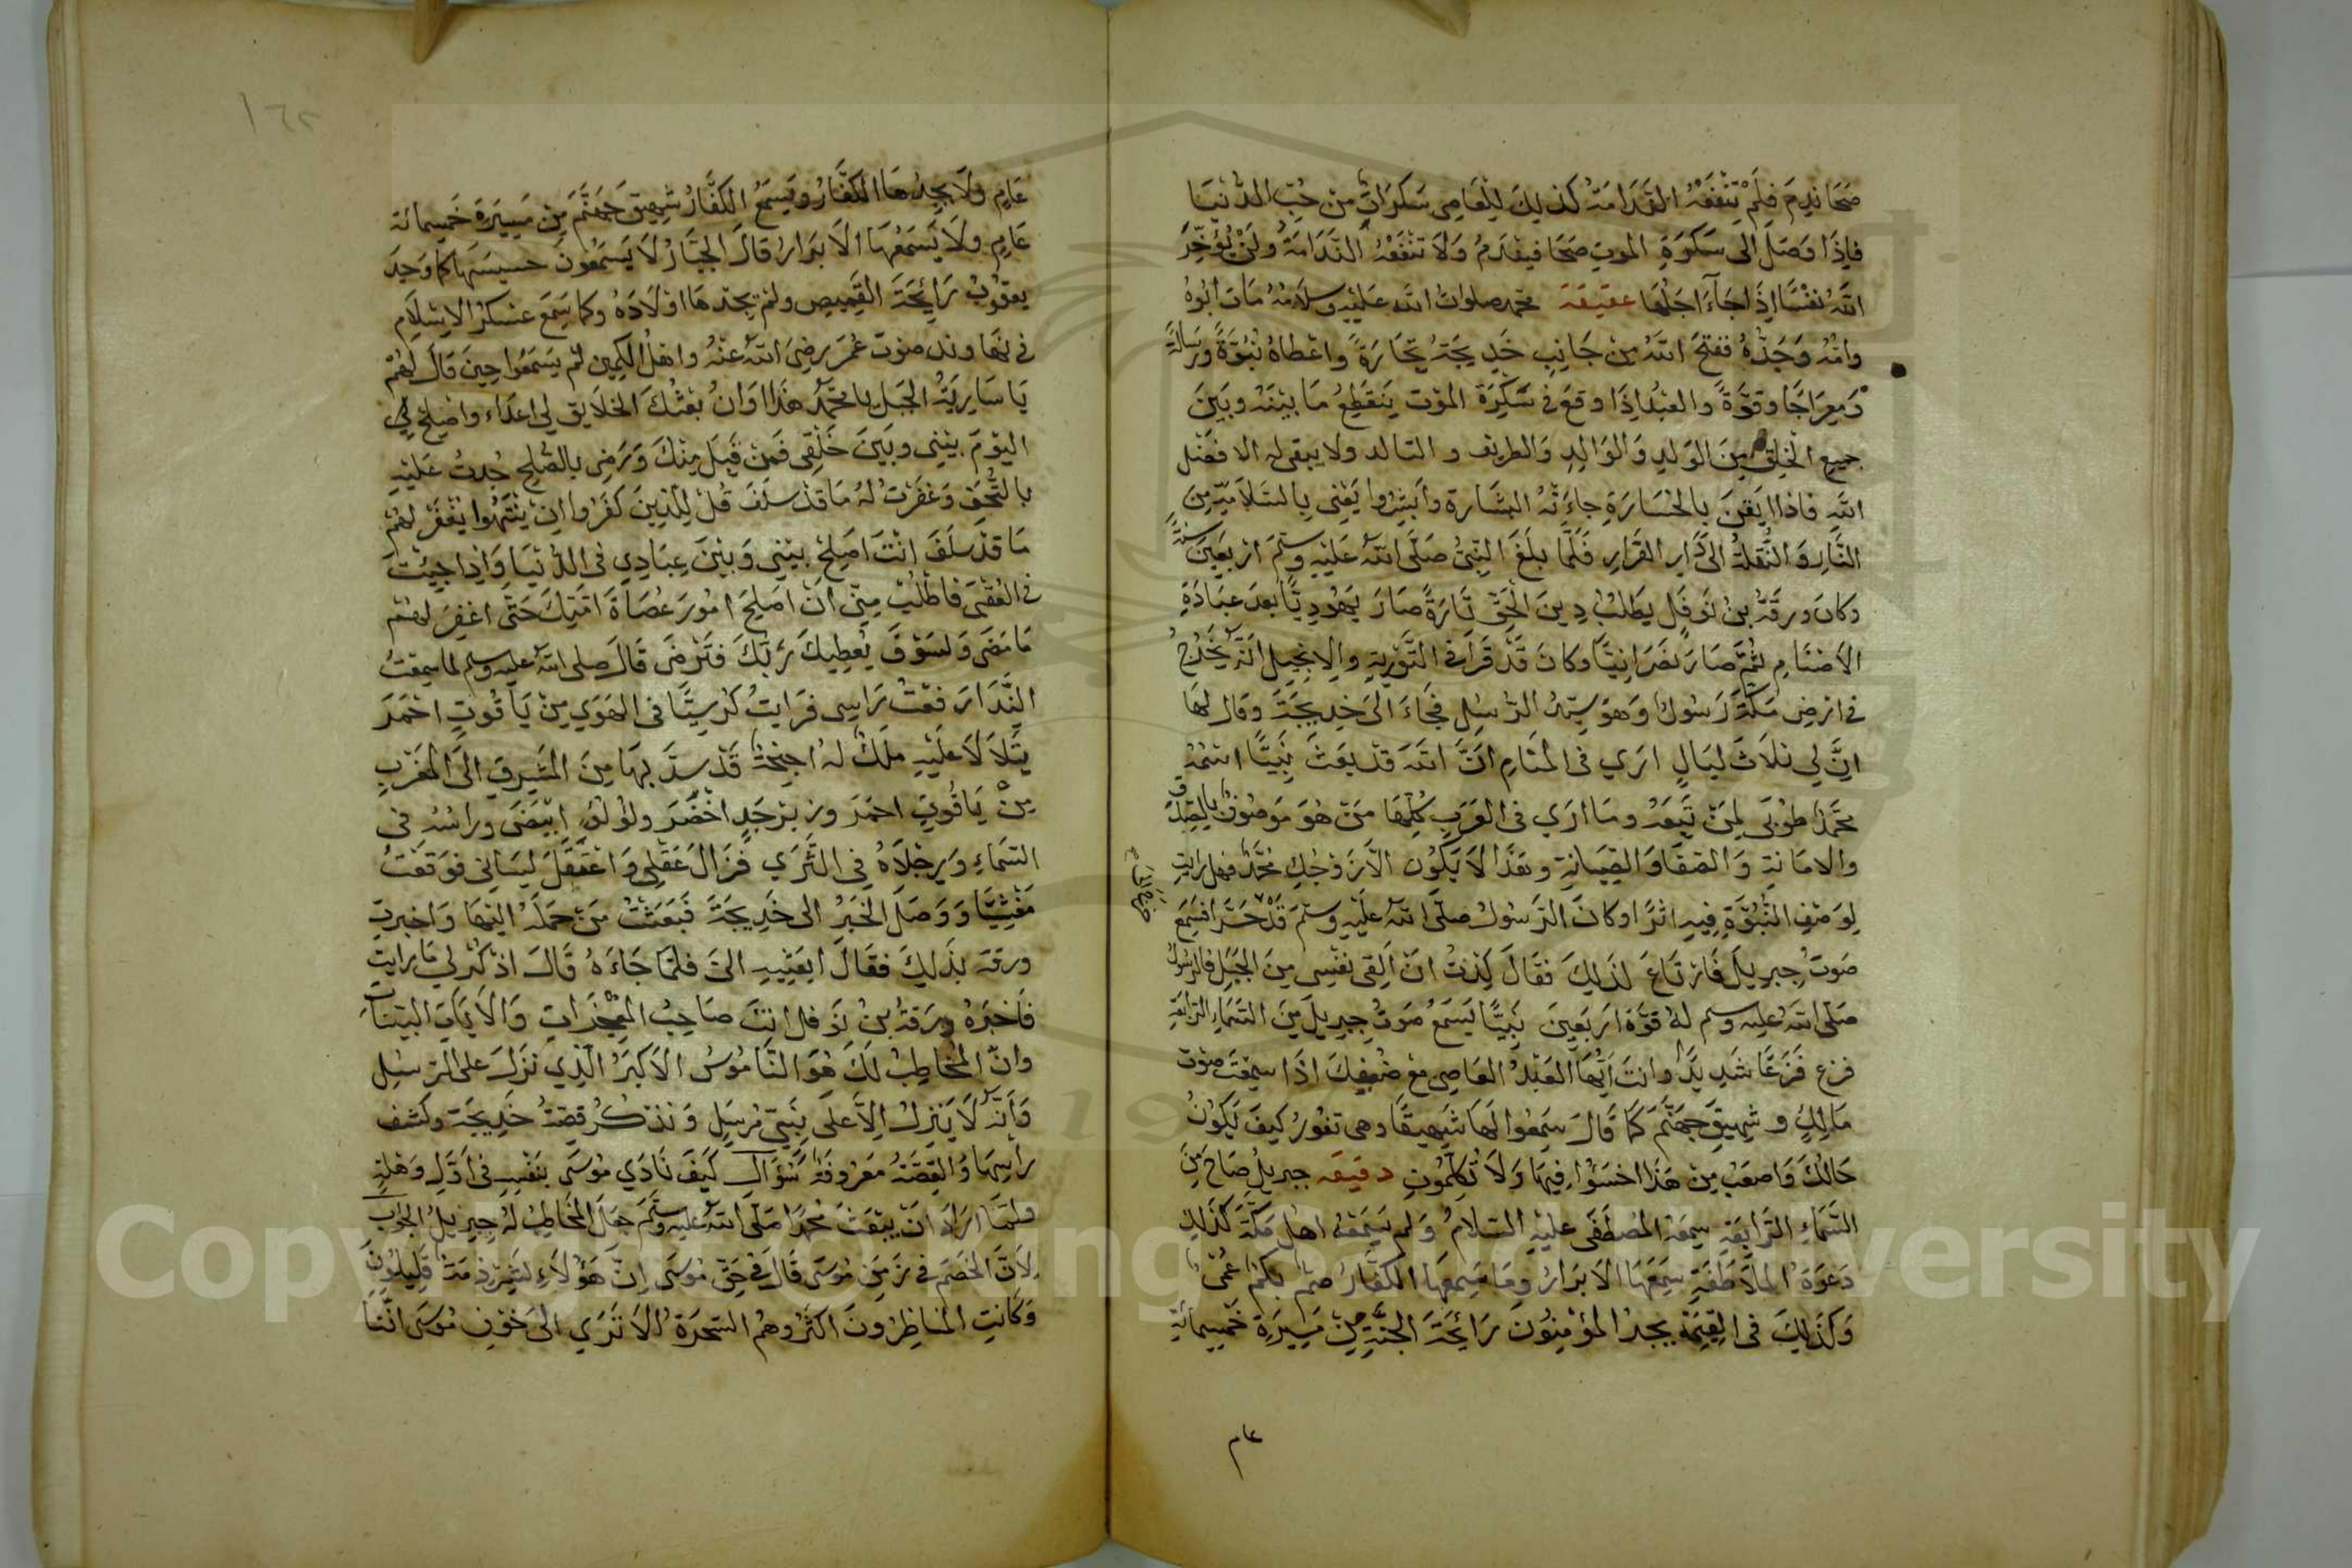 صَحَا نَدِمَ فلَمْ تَنْفَعْهُ النَّدَامَةُ كذلِكَ لِلْعَاصِي سَكَرَاتٌ مِنْ حُبِّ الدُّنْيَا
فإِذَا وَصَلَ الَى سَكْرَةِ الموتِ صَحَا فيقدَمُ وَلَا تنْفَعْهُ النَّدَامَةُ ولَنْ يُؤَخِّرَ
اللهُ نفْسًا اِذَا جَآءَ اجَلُهَا عقيقة محمد صلوات الله عَليْهِ وسلامُهُ مَاتَ ابُوهُ
وامُّهُ وَجَدُّهُ ففتحَ اللهُ مِنْ جَانِبِ خَدِيجَةَ تِجَارَةً واعْطاهُ نُبُوَّةً ورِسَالَةً
ومِعرَاجًا وقوَّةً والعبْدُ اِذَا وقعَ فى سَكْرَةِ الموْت يَنقَطِعُ مَا بيْنَهُ وبَيْنَ
جميع الخلقِ مِنَ الوَلدِ وَالوَالِدِ وَالطريف والتالد ولا يبقى له الا فضْلُ
اللهِ فاذا ايَقَنَ بالخسَارَةِ جاءَتْهُ البشَارة وابشِرُوا يَعْنِى بالسَّلَامَةِ مِنَ
النَّارِ وَالنُّقْلَةِ الىَ دَارِ القرَارِ فَلَمَّا بلَغَ النَّبِيُّ صَلَّى اللهُ عَليْهِ وسلَّمَ ارْبعِينَ سَنَةً
وكانَ ورقَةُ بنُ نَوفَل يطلبُ دِينَ الْحَقِّ تَارَةً صَارَ يهُودِيًّا بعدَ عِبَادَةِ
الاَصْنَامِ ثُمَّ صَارَ نصْرَانِيًّا وكانَ قَدْ قَرَأَ فى التَّوْرَيةِ والاِنجيلِ اَنَّهُ يَخْرُجُ
فى ارْضِ مَكَّةَ رَسُولٌ وَهوَ سيِّدُ الرُّسُلِ فجَاءَ الىَ خدِيجَةَ وقال لهَا
اِنَّ لِي ثلَاثَ ليَالٍ ارَي فى المَنَامِ انَّ اللهَ قدْ بعَثَ نَبِيًّا اسْمُهُ
محمَّدٌ طوُبَى لِمَنْ تَبِعَهُ ومَا ارَي فى العَرَبِ كلِّهَا مَنْ هُوَ موْصُوفٌ بالصِّدْقِ
والامَانةِ وَالصَّفَا وَالصِّيَانةِ وهَذَا لاَ يَكوُن الَّا زوْجُكِ محمَّدٌ فهل رايتِ
لِوَصْفِ النُّبُوَّةِ فِيهِ اثرًا وكانَ الرَّسُولُ صلَّى اللهُ عَليْهِ وسلَّمَ قَدْ فسَمِعَ
صَوتَ جبريلَ فَارْتاعَ لذلِكَ فقَالَ كِدْتُ انْ اُلقِى نفْسِى مِنَ الجَبَلِ فالرَّسُولُ
صَلى اللهُ عليه وسلم لهُ قوَّةُ ارْبَعِينَ نبِيًّا يَسمَعُ صَوتَ جِبريلَ مِنَ السَّمَاءِ الرَّابعَةِ
فزع فَزَعًا شَدِيدًا وانتَ ايُّهَا العَبْدُ العَاصِي معَ ضُعْفِكَ اذَا سمِعْتَ صَوْتَ
مَالِكٍ وشهِيقَ جَهَنَّمَ كمَا قَالَ سَمِعُوا لَهَا شَهِيقًا وهى تفُورُ كيفَ يَكُونُ
حَالُكَ وَاصعَبُ مِنْ هَذَا اخسَؤُا فِيهَا وَلَا تُكلِّمُونِ دقيقه جبريلُ صَاحَ مِنَ
السَّمَاءِ الرَّابعَةِ سمِعَهُ المُصْطَفَى عليْهِ السلامُ وَلم يَسْمَعْهُ اهْل مَكَّةَ كذَلِكَ
دَعْوَةُ الملَاطَفَةِ سَمِعَهَا الابرَارُ ومَا سَمِعهَا الكفَّارُ صُمٌّ بكمٌ عُمْىٌ
وَكذَلِكَ فى القيمَةِ يجدُ المؤْمِنُونَ رَائحَةَ الجنَّةِ مِنْ مَسِيرَةِ خمْسِمائةِ
عام
١٦٢
عَامٍ ولَا يجِدُهَا الكفَّارُ ويسمَعُ الكفَّارُ شهِيقَ جَهنَّمَ مِنْ مَسِيرَةِ خَمْسِمائة
عَامٍ ولَا يَسمَعُهَا الاَبرَارُ قالَ الجبَّارُ لَا يَسمَعُونَ حسيسَهَا كمَا وَجدَ
يعقُوبُ رَائِحَةَ القَمِيصِ ولمْ يجدهَا اولَادُهُ وكما سَمِعَ عَسْكرُ الاِسْلَامِ
فى نهَاوند صَوْتَ عُمَرَ رضِىَ اللهُ عَنْهُ واهْلُ الكمِين لم يسْمَعُوا حِينَ قَالَ لهُمْ
يَا سَارِيَةُ الجَبلَ يا محمَّدُ هَذَا اوَانُ بعْثُكَ الخلَايق لى اعدَاء واصْلح لي
اليَوْمَ بيْنِي وبَيْنَ خَلْقِى فَمَنْ قَبِلَ مِنْكَ وَرَضِيَ بالصُّلحِ جُدتُ عَلَيْهِ
بالتُّحَفِ وَغفَرْتُ لهُ مَا قدْ سلَفَ قُلْ لِلَّذِينَ كفَرُوا اِنْ يَنْتَهُوا يُغْفَرْ لهُمْ
مَا قدْ سَلَفَ انْتَ اصلِحْ بيْنِي وَبيْنَ عِبَادِي فى الدُّنْيَا وَاِذا جِئتَ
فى العُقْبَى فاطْلُبْ مِنِّي اَنْ اُصَلِحَ امُورَ عُصَاةِ امَّتِكَ حَتَّى اغفِرَ لهُمْ
مَا مَضَى وَلسَوْفَ يُعْطِيكَ رَبُّكَ فَتَرْضَى قَالَ صلى اللهُ عليه وسلم لمَا سمِعْتُ
النِّدَا رَفعْتُ رَاسِى فرَايتُ كرْسِيًّا فى الهَوَي مِنْ يَاقُوتٍ احْمَرَ
يتَلَالَا عَليْهِ مَلَكٌ لهُ اجنِحَةٌ قَدْ سدَّ بهَا مِنَ المَشرِقِ الىَ المَغْربِ
مِنْ يَاقُوتٍ احمَرَ وزبَرْجَدٍ اخْضَرَ ولؤلؤٍ ابْيَضَ ورَاسُهُ فى
السَّمَاءِ وَرِجْلَاهُ فِى الثَّرَي فزَالَ عَقْلِى وَاعْتَقَلَ لِسَانِى فوَقعْتُ
مَغْشِيًّا وَوَصَلَ الخَبَرُ الى خَدِيجَةَ فَبَعَثَتْ مَنْ حمَلَهُ اليْهَا وَاخبرت
ورقة بذَلِكَ فقَالَ ابعَثِيهِ الىَّ فلمَّا جَاءَهُ قَالَ اذكرْ لِي مَا رايتَ
فَاخبَرَهُ ورَقةُ بنُ نَوفل انتَ صَاحِبُ المعْجزَاتِ وَالاَيَاتِ البيّنَات
وانَّ المخَاطِبَ لكَ هُوَ النَّامُوسُ الاَكبَرُ الَّذِي نزَلَ على الرُّسُلِ
وَأنَّهُ لَا يَنزِلُ اِلَّا علَى نَبِيٍّ مُرسَلٍ وَنذكرُ قِصَّةَ خَدِيجَةَ وكشفَ
رَأسِهَا وَالقِصَّةُ مَعْرُوفَةٌ سُؤَال كَيفَ نَادَي مُوسَى بنَفْسِهِ فى اَوَّلِ وَهْلةٍ
ولمَّا ارَادَ انْ يبْعَثَ محمَّدًا صَلَّى اللهُ عليْهِ وسَلَّمَ جعَلَ المخَاطِبَ لهُ جِبرِيلَ الجوَابُ
لِاَنَّ الخَصْمَ فى زَمَنِ مُوسَى قَالَ فى حَقِّ مُوسَى اِنَّ هَؤُلاَءِ لَشِرْذِمَةٌ قَلِيلُونَ
وَكَانتِ المنَاظِرُونَ اكثرُ وهُمُ السَّحَرَةُ الَا تَرَي الَى خَوْفِ مُوسَى انَّنَا